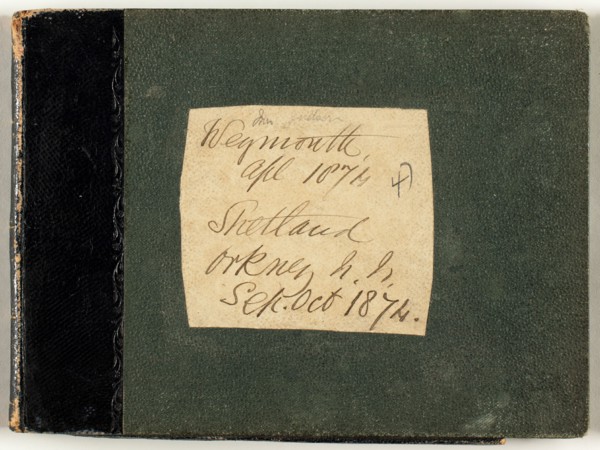 Weymouth,
Apl 1874
4)
Shetland
Orkney
Sep. Oct 1874.